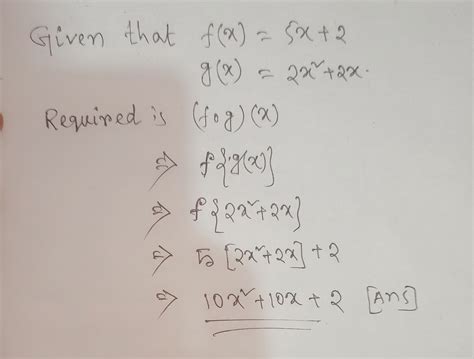 Given that f(x) = 5x+2
g(x) = 2x²+2x.
Required is (fog)(x)
⇒ f{g(x)}
⇒ f{2x²+2x}
⇒ 5[2x²+2x]+2
⇒ 10x²+10x+2 [Ans]